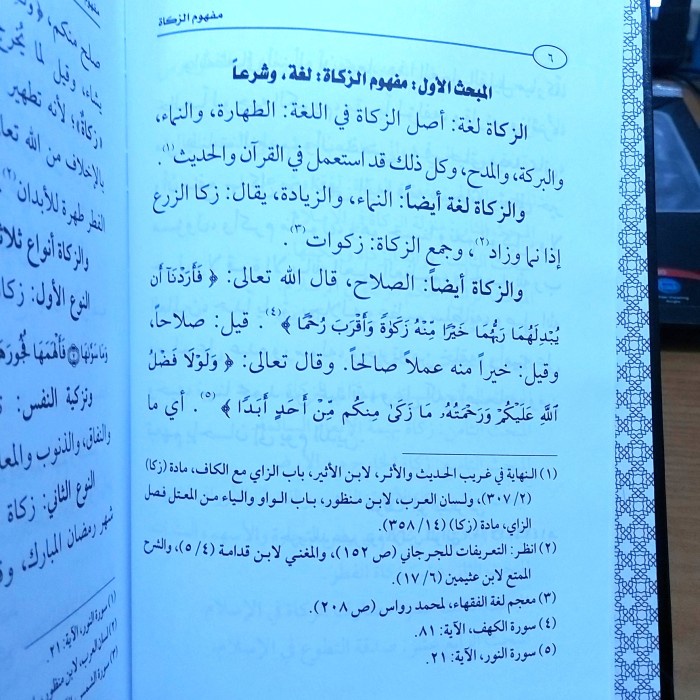 مفهوم الزكاة
٦
المبحث الأول: مفهوم الزكاة: لغة، وشرعاً
الزكاة لغة: أصل الزكاة في اللغة: الطهارة، والنماء،
والبركة، والمدح، وكل ذلك قد استعمل في القرآن والحديث(١).
والزكاة لغة أيضاً: النماء، والزيادة، يقال: زكا الزرع
إذا نما وزاد(٢)، وجمع الزكاة: زكوات(٣).
والزكاة أيضاً: الصلاح، قال الله تعالى: ﴿ فَأَرَدْنَآ أَن
يُبْدِلَهُمَا رَبُّهُمَا خَيْرًا مِّنْهُ زَكَوٰةً وَأَقْرَبَ رُحْمًا ﴾(٤). قيل: صلاحاً،
وقيل: خيراً منه عملاً صالحاً. وقال تعالى: ﴿ وَلَوْلَا فَضْلُ
ٱللَّهِ عَلَيْكُمْ وَرَحْمَتُهُۥ مَا زَكَىٰ مِنكُم مِّنْ أَحَدٍ أَبَدًا ﴾(٥). أي ما
(١) النهاية في غريب الحديث والأثر، لابن الأثير، باب الزاي مع الكاف، مادة (زكا)
(٢/ ٣٠٧)، ولسان العرب، لابن منظور، باب الواو والياء من المعتل فصل
الزاي، مادة (زكا) (١٤/ ٣٥٨).
(٢) انظر: التعريفات للجرجاني (ص ١٥٢)، والمغني لابن قدامة (٤/ ٥)، والشرح
الممتع لابن عثيمين (٦/ ١٧).
(٣) معجم لغة الفقهاء، لمحمد رواس (ص ٢٠٨).
(٤) سورة الكهف، الآية: ٨١.
(٥) سورة النور، الآية: ٢١.
صلح منكم،
يشاء، وقيل لما يُخرج
زكاةٌ)؛ لأنه تطهير
بالإخلاف من الله
الفطر طهرة للأبدان(٢)
والزكاة أنواع
النوع الأول:
فَأَلْهَمَهَا
وتزكية النفس:
والنفاق، والذنوب
النوع الثاني: زكاة
شهر رمضان المبارك،
(١) سورة النور، الآية: ٢١.
(٢) لسان العرب، لابن منظور،
(٣) سورة